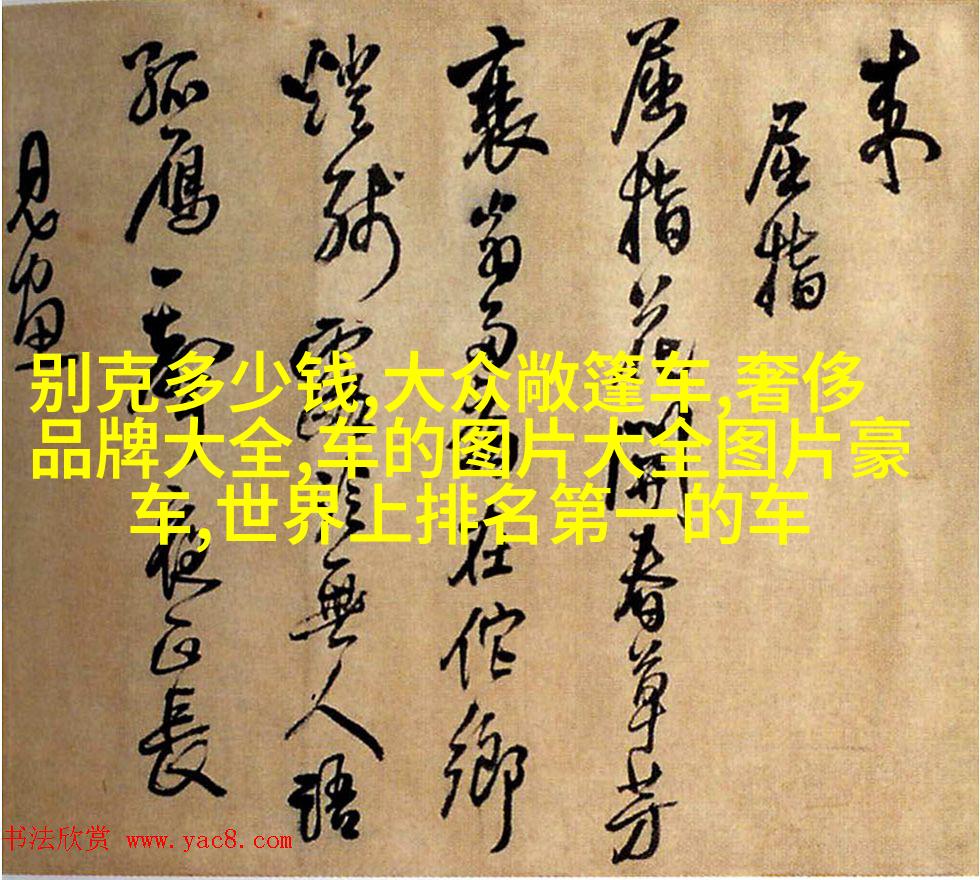 来
屈指
屈指花開春草芳
衰翁多病在佗鄉
燈殘露冷無人語
孤雁一聲夜正長
别克多少钱,大众敞篷车,奢侈
品牌大全,车的图片大全图片豪
车,世界上排名第一的车
书法欣赏 www.yac8.com